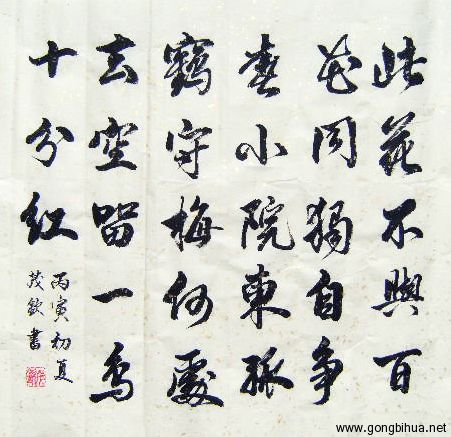 此花不與百
花同獨自爭
春小院東孤
鶴守梅何處
去空留一鳥
十分紅
丙寅初夏
茂欽書
www.gongbihua.net